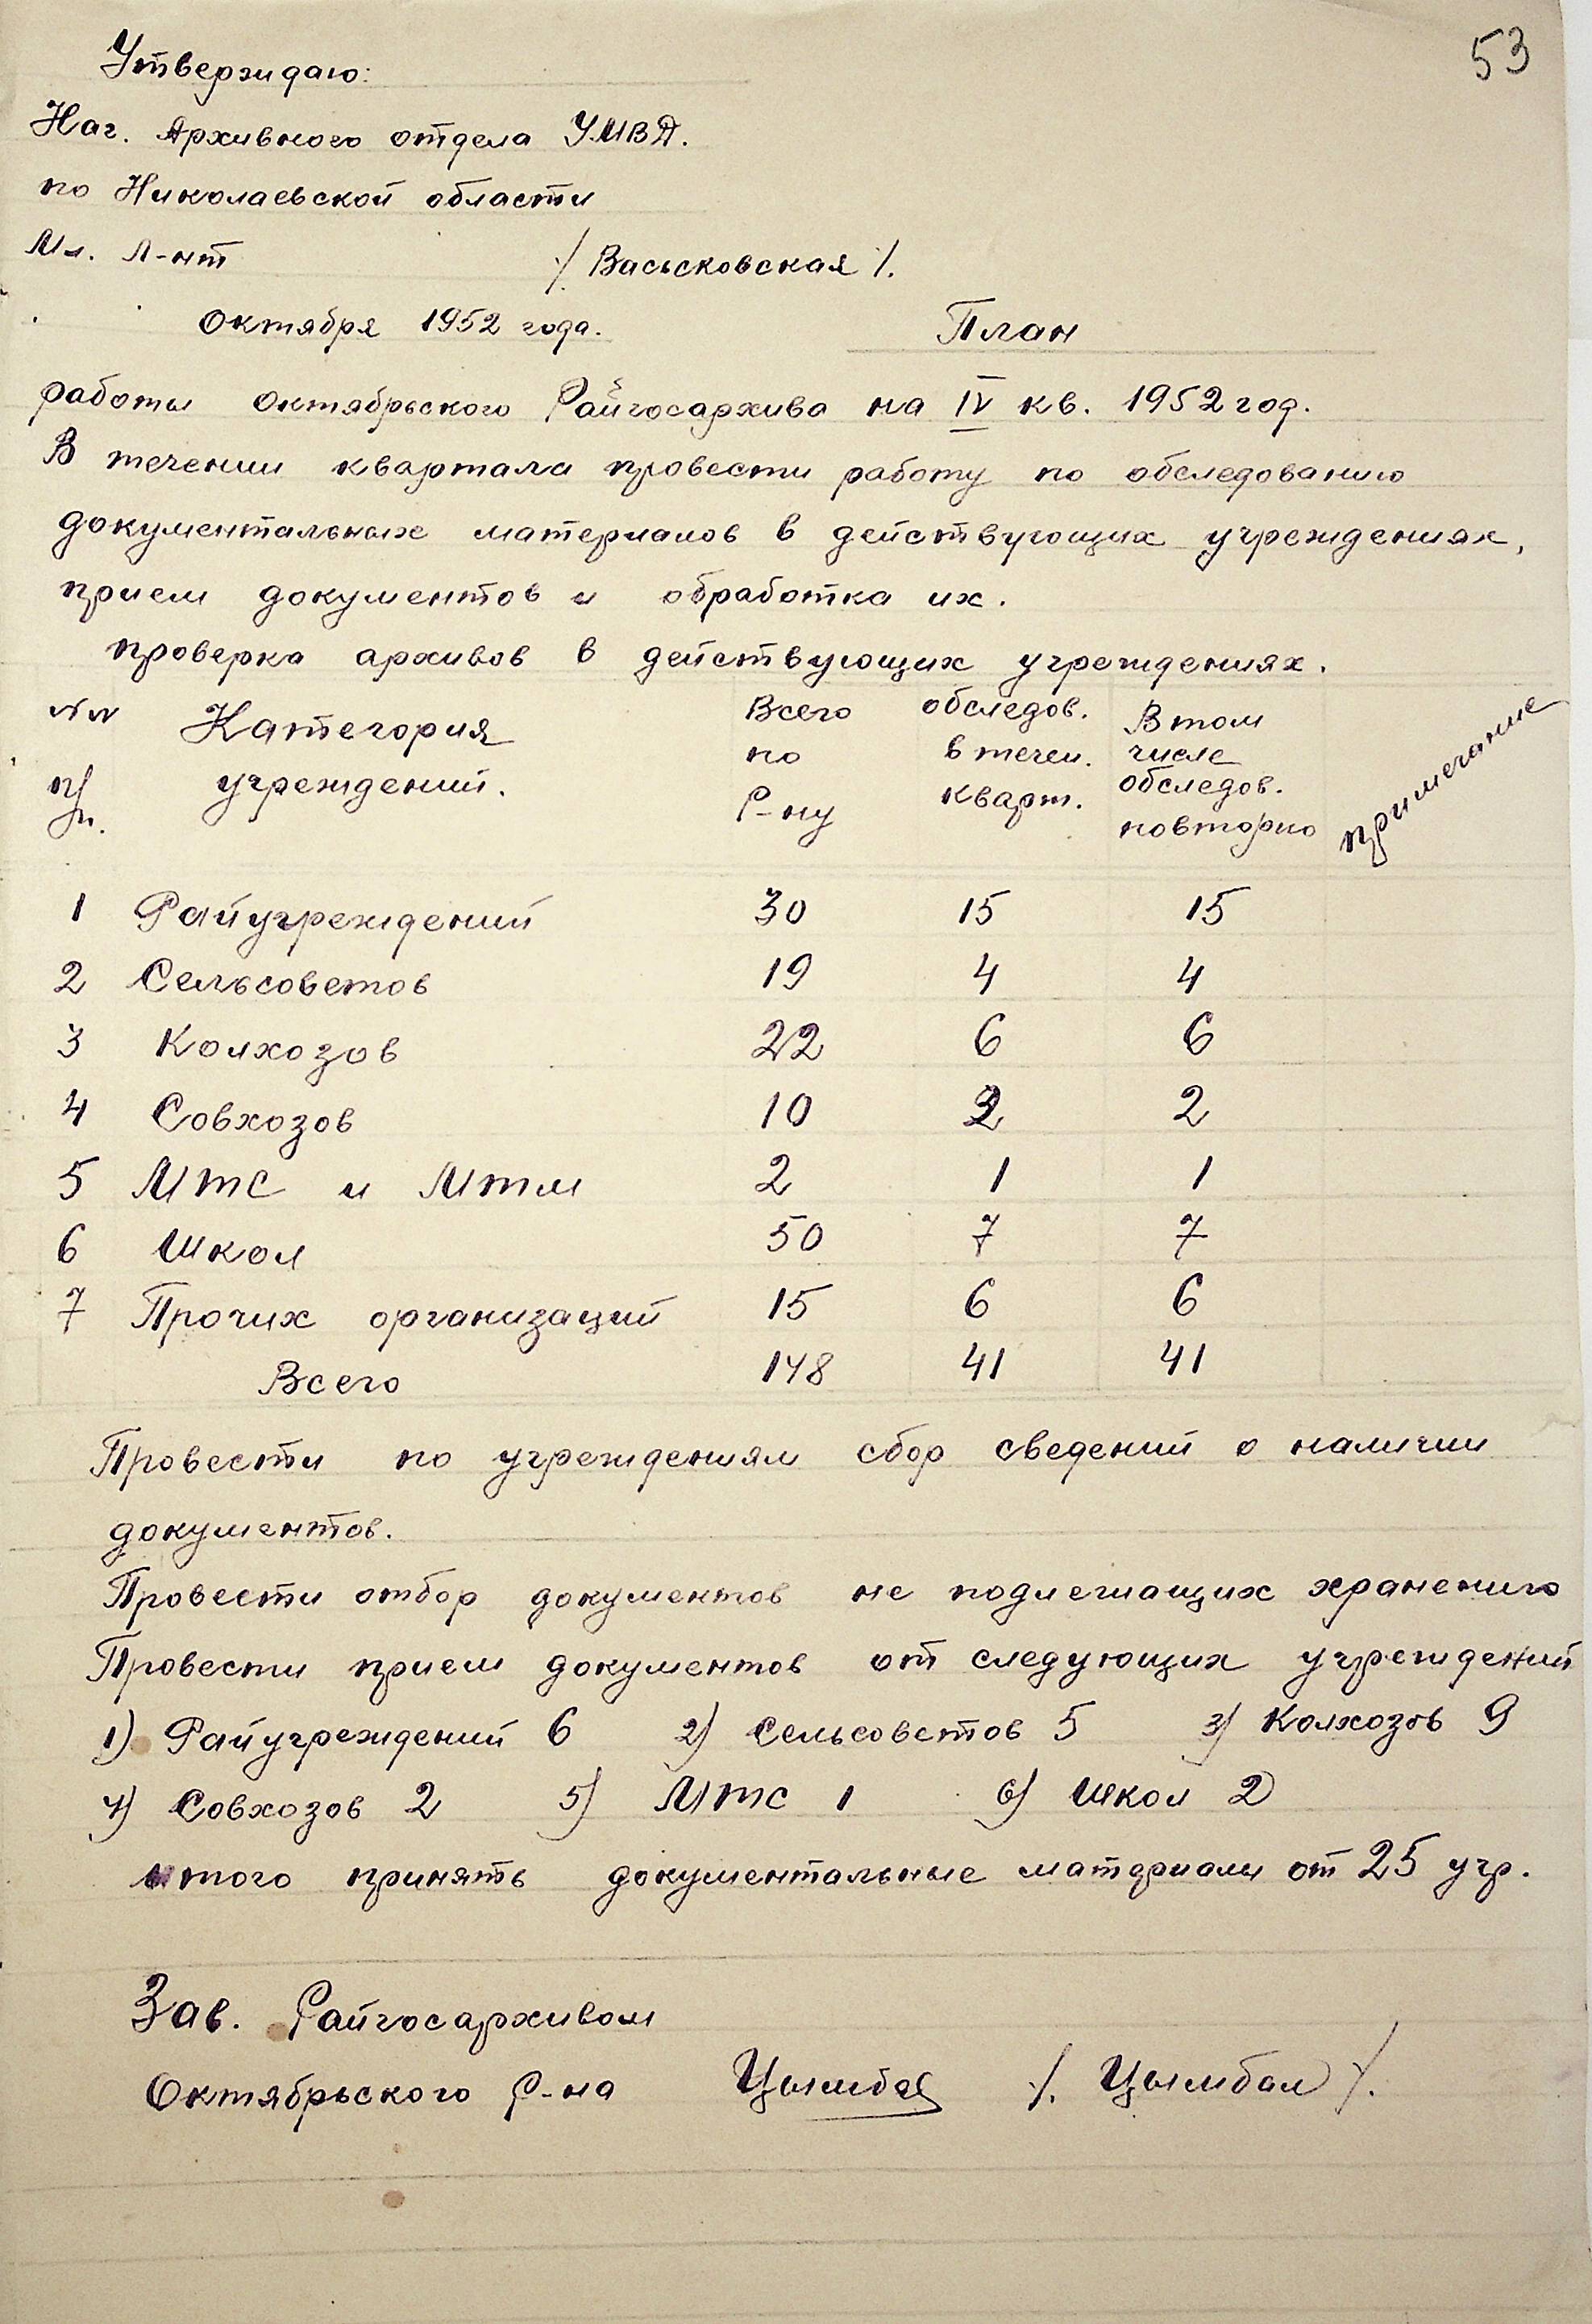 53
Утверждаю:
Нач. Архивного отдела УМВД.
по Николаевской области
Мл. Л-нт /. Васьсковская /.
Октября 1952 года.
План
работы Октябрьского Райгосархива на IV кв. 1952 год.
В течении квартала провести работу по обследованию
документальных материалов в действующих учреждениях,
прием документов и обработка их.
проверка архивов в действующих учреждениях.
№№ п/п. Категория учреждений. Всего по Р-ну обследов. в течен. кварт. В том числе обследов. повторно примечание
1 Райучреждений 30 15 15
2 Сельсоветов 19 4 4
3 Колхозов 22 6 6
4 Совхозов 10 2 2
5 МТС и Мтм 2 1 1
6 Школ 50 7 7
7 Прочих организаций 15 6 6
Всего 148 41 41
Провести по учреждениям сбор сведений о наличии
документов.
Провести отбор документов не подлежащих хранению
Провести прием документов от следующих учреждений
1) Райучреждений 6 2) Сельсоветов 5 3) Колхозов 9
4) Совхозов 2 5) МТС 1 6) Школ 2
итого принять документальные материалы от 25 учр.
Зав. Райгосархивом
Октябрьского Р-на Цымбал /. Цымбал /.